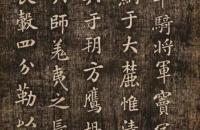 騎將軍竇
納于大麓惟清
兵于朔方鷹揚
六師羌夷之長
長轂四分勒以